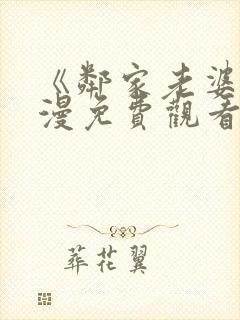 《鄰家老婆
漫免費觀看
葬花翼